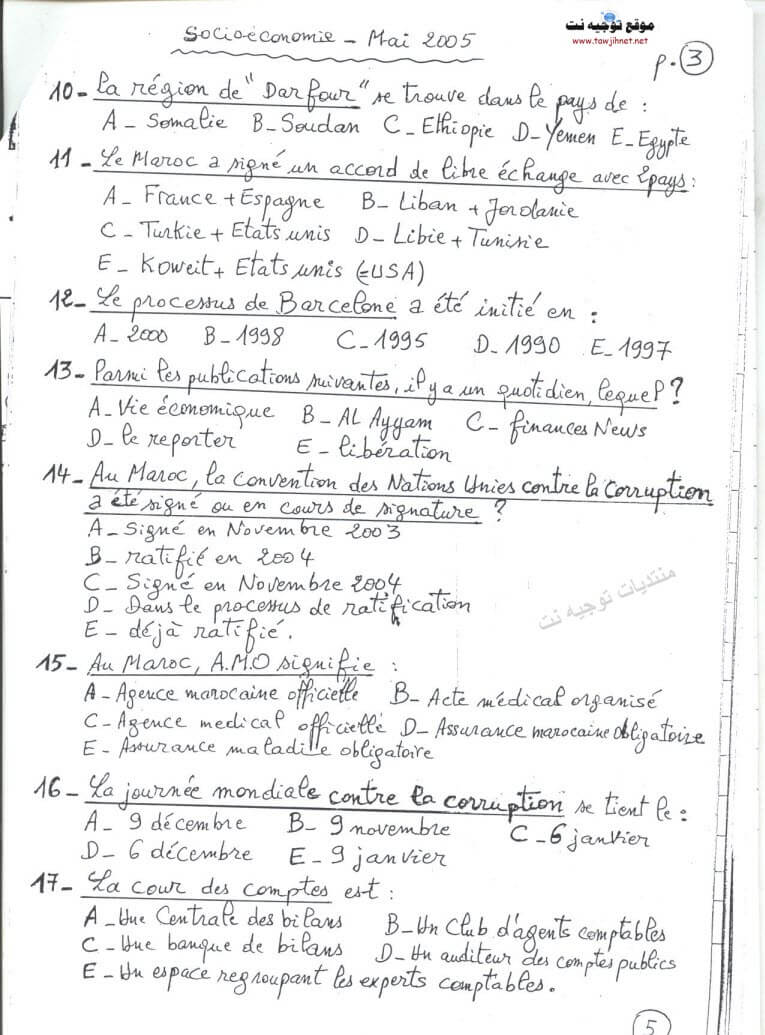 Socioéconomie - Mai 2005
موقع توجيه نت
www.tawjihnet.net
p. 3
10 - La région de "Darfour" se trouve dans le pays de :
A - Somalie B - Soudan C - Ethiopie D - Yemen E - Egypte
11 - Le Maroc a signé un accord de libre échange avec 2 pays :
A - France + Espagne B - Liban + Jordanie
C - Turkie + Etats unis D - Libie + Tunisie
E - Koweit + Etats unis (= USA)
12 - Le processus de Barcelone a été initié en :
A - 2000 B - 1998 C - 1995 D - 1990 E - 1997
13 - Parmi les publications suivantes, il y a un quotidien, lequel ?
A - Vie économique B - AL Ayyam C - finances News
D - le reporter E - libération
14 - Au Maroc, la convention des Nations Unies contre la corruption
a été signé ou en cours de signature ?
A - Signé en Novembre 2003
B - ratifié en 2004
C - Signé en Novembre 2004
D - Dans le processus de ratification
E - déjà ratifié.
منتديات توجيه نت
15 - Au Maroc, A.M.O signifie :
A - Agence marocaine officielle B - Acte médical organisé
C - Agence medical officielle D - Assurance marocaine obligatoire
E - Assurance maladile obligatoire
16 - La journée mondiale contre la corruption se tient le :
A - 9 décembre B - 9 novembre C - 6 janvier
D - 6 décembre E - 9 janvier
17 - La cour des comptes est :
A - Une Centrale des bilans B - Un Club d'agents comptables
C - Une banque de bilans D - Un auditeur des comptes publics
E - Un espace regroupant les experts comptables.
5